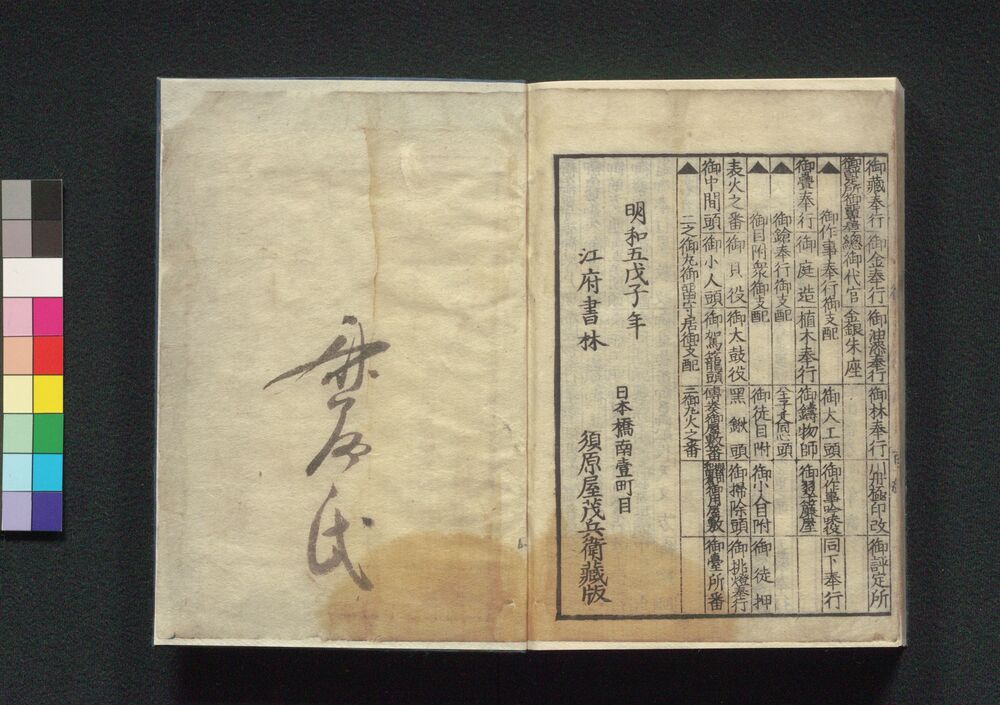 御藏奉行 御金奉行 御油漆奉行 御林奉行 川船極印改 御評定所
御代官 金銀朱座
▲御作事奉行御支配 御大工頭 御作事吟味役 同下奉行
御疊奉行 御庭造 植木奉行 御鑄物師 御翠簾屋
▲御鎗奉行御支配 八王子千人同心頭
▲御目附衆御支配 御徒目附 御小人目附 御徒押
表火之番 御貝役 御太鼓役 黑鍬頭 御掃除頭 御挑燈奉行
御中間頭 御小人頭 御駕籠頭 傳奏御屋敷番 御用屋敷 御臺所番
▲二之御丸御留守居御支配 三御丸火之番
明和五戊子年
江府書林
日本橋南壹町目
須原屋茂兵衛藏版
氏